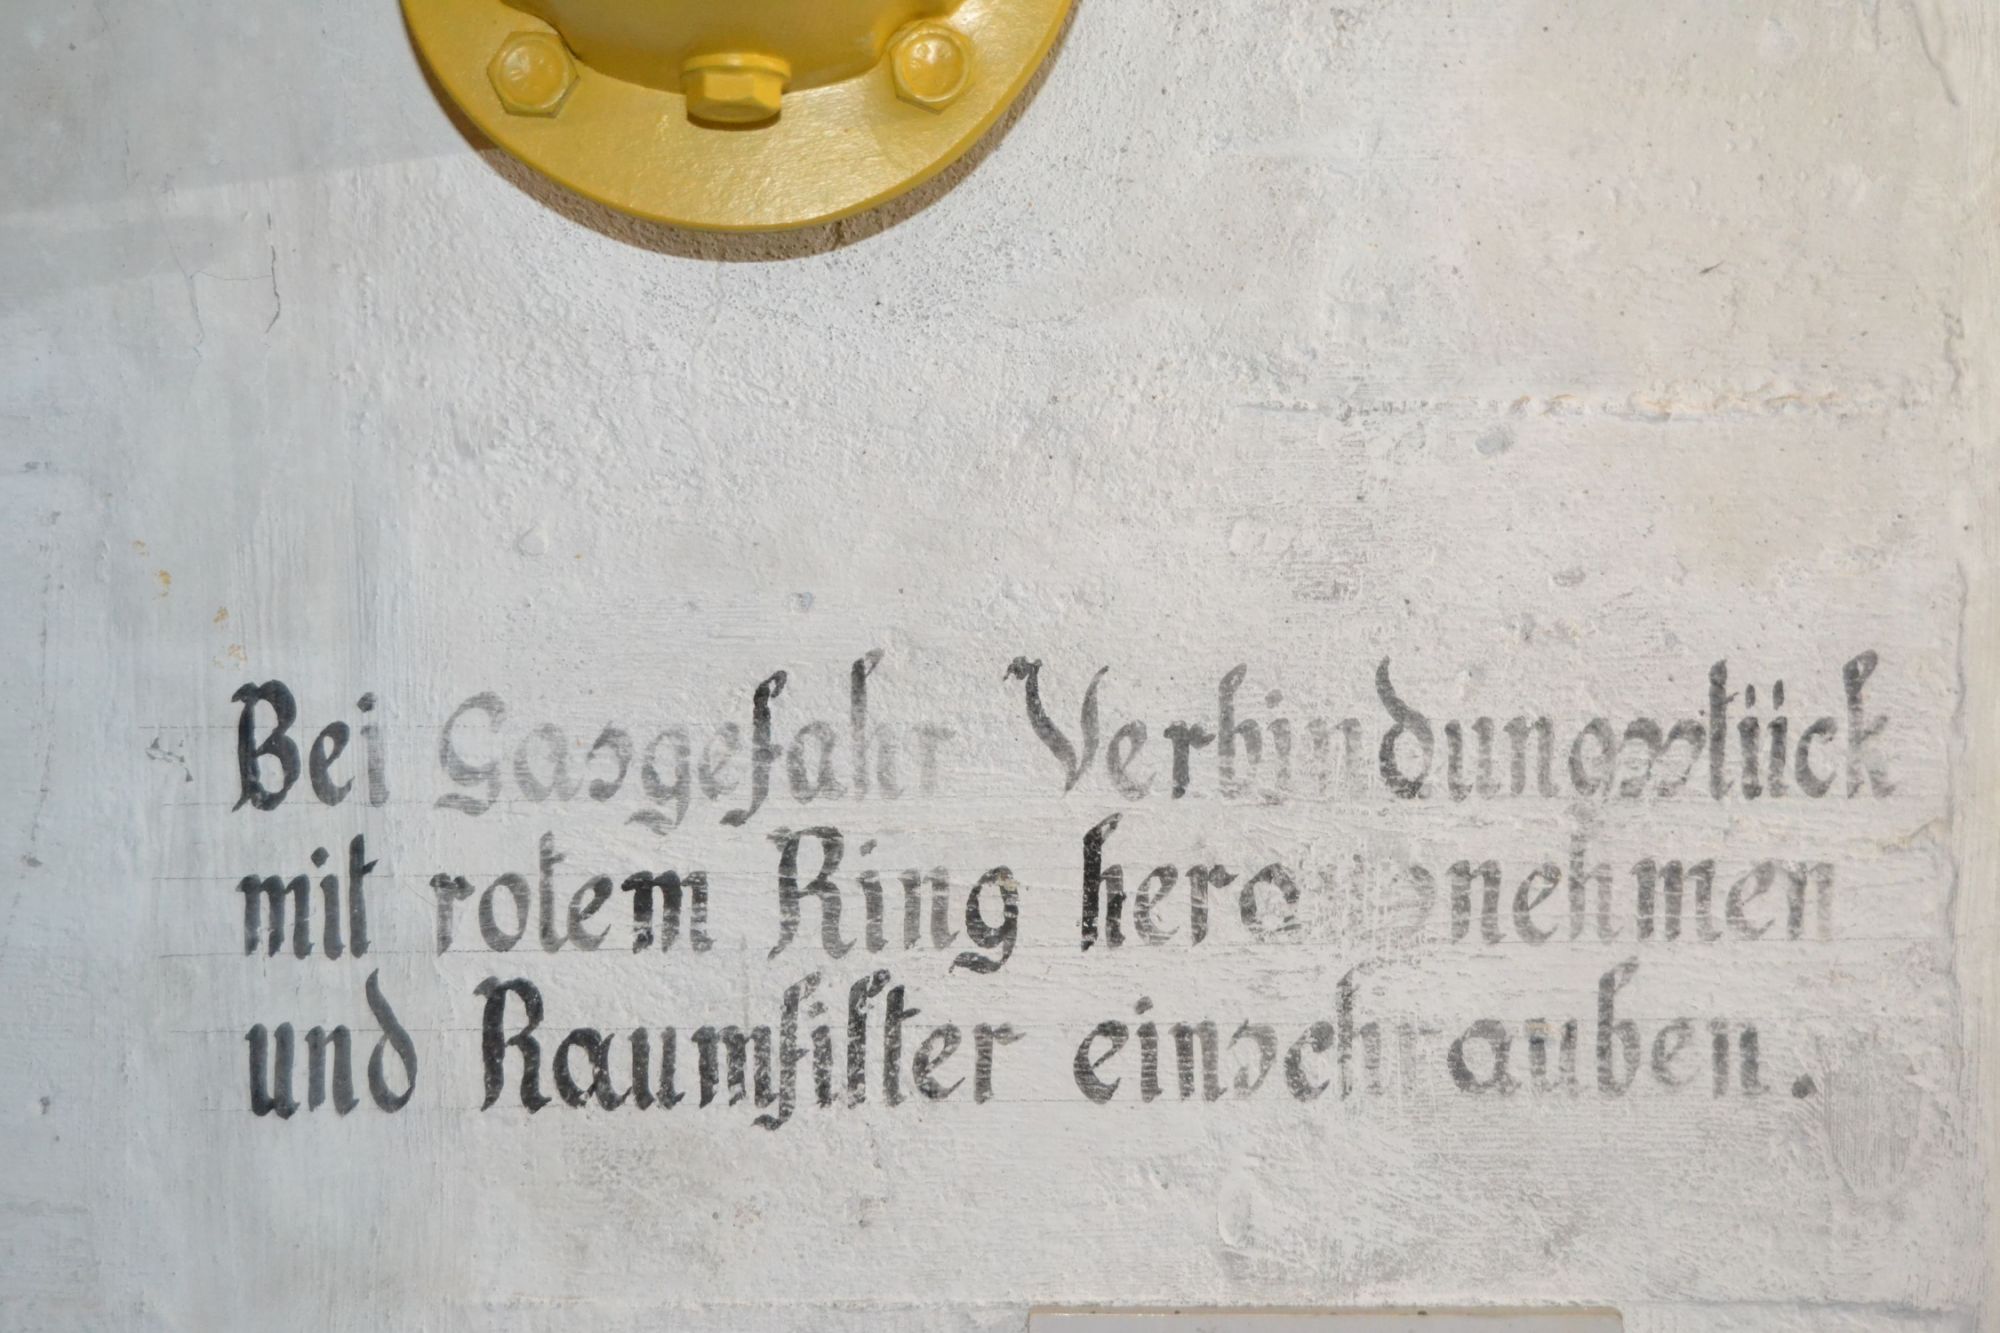 Bei Gasgefahr Verbindungsstück
mit rotem Ring herausnehmen
und Raumfilter einschrauben.